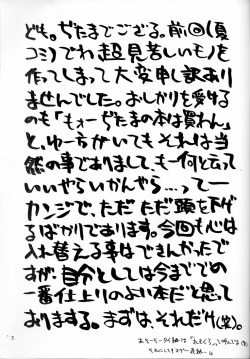 ども。ぢたまでござる。前回(夏
コミ)でわ超見苦しいモノを
作ってしまって大変申し訳あり
ませんでした。おしかりを受ける
のも「もォーぢたまの本は買わん」
と、ゆー方がいてもそれは当
然の事でありまして、も一何と云って
いいやらいかんやら…って一
カンジで、ただただ頭を下げ
るばかりであります。今回も心は
入れ替える事はできんかったで
すが、自分としては今までで
一番仕上りのよい本だと思って
おりまする。まずは、それだけ(笑)。